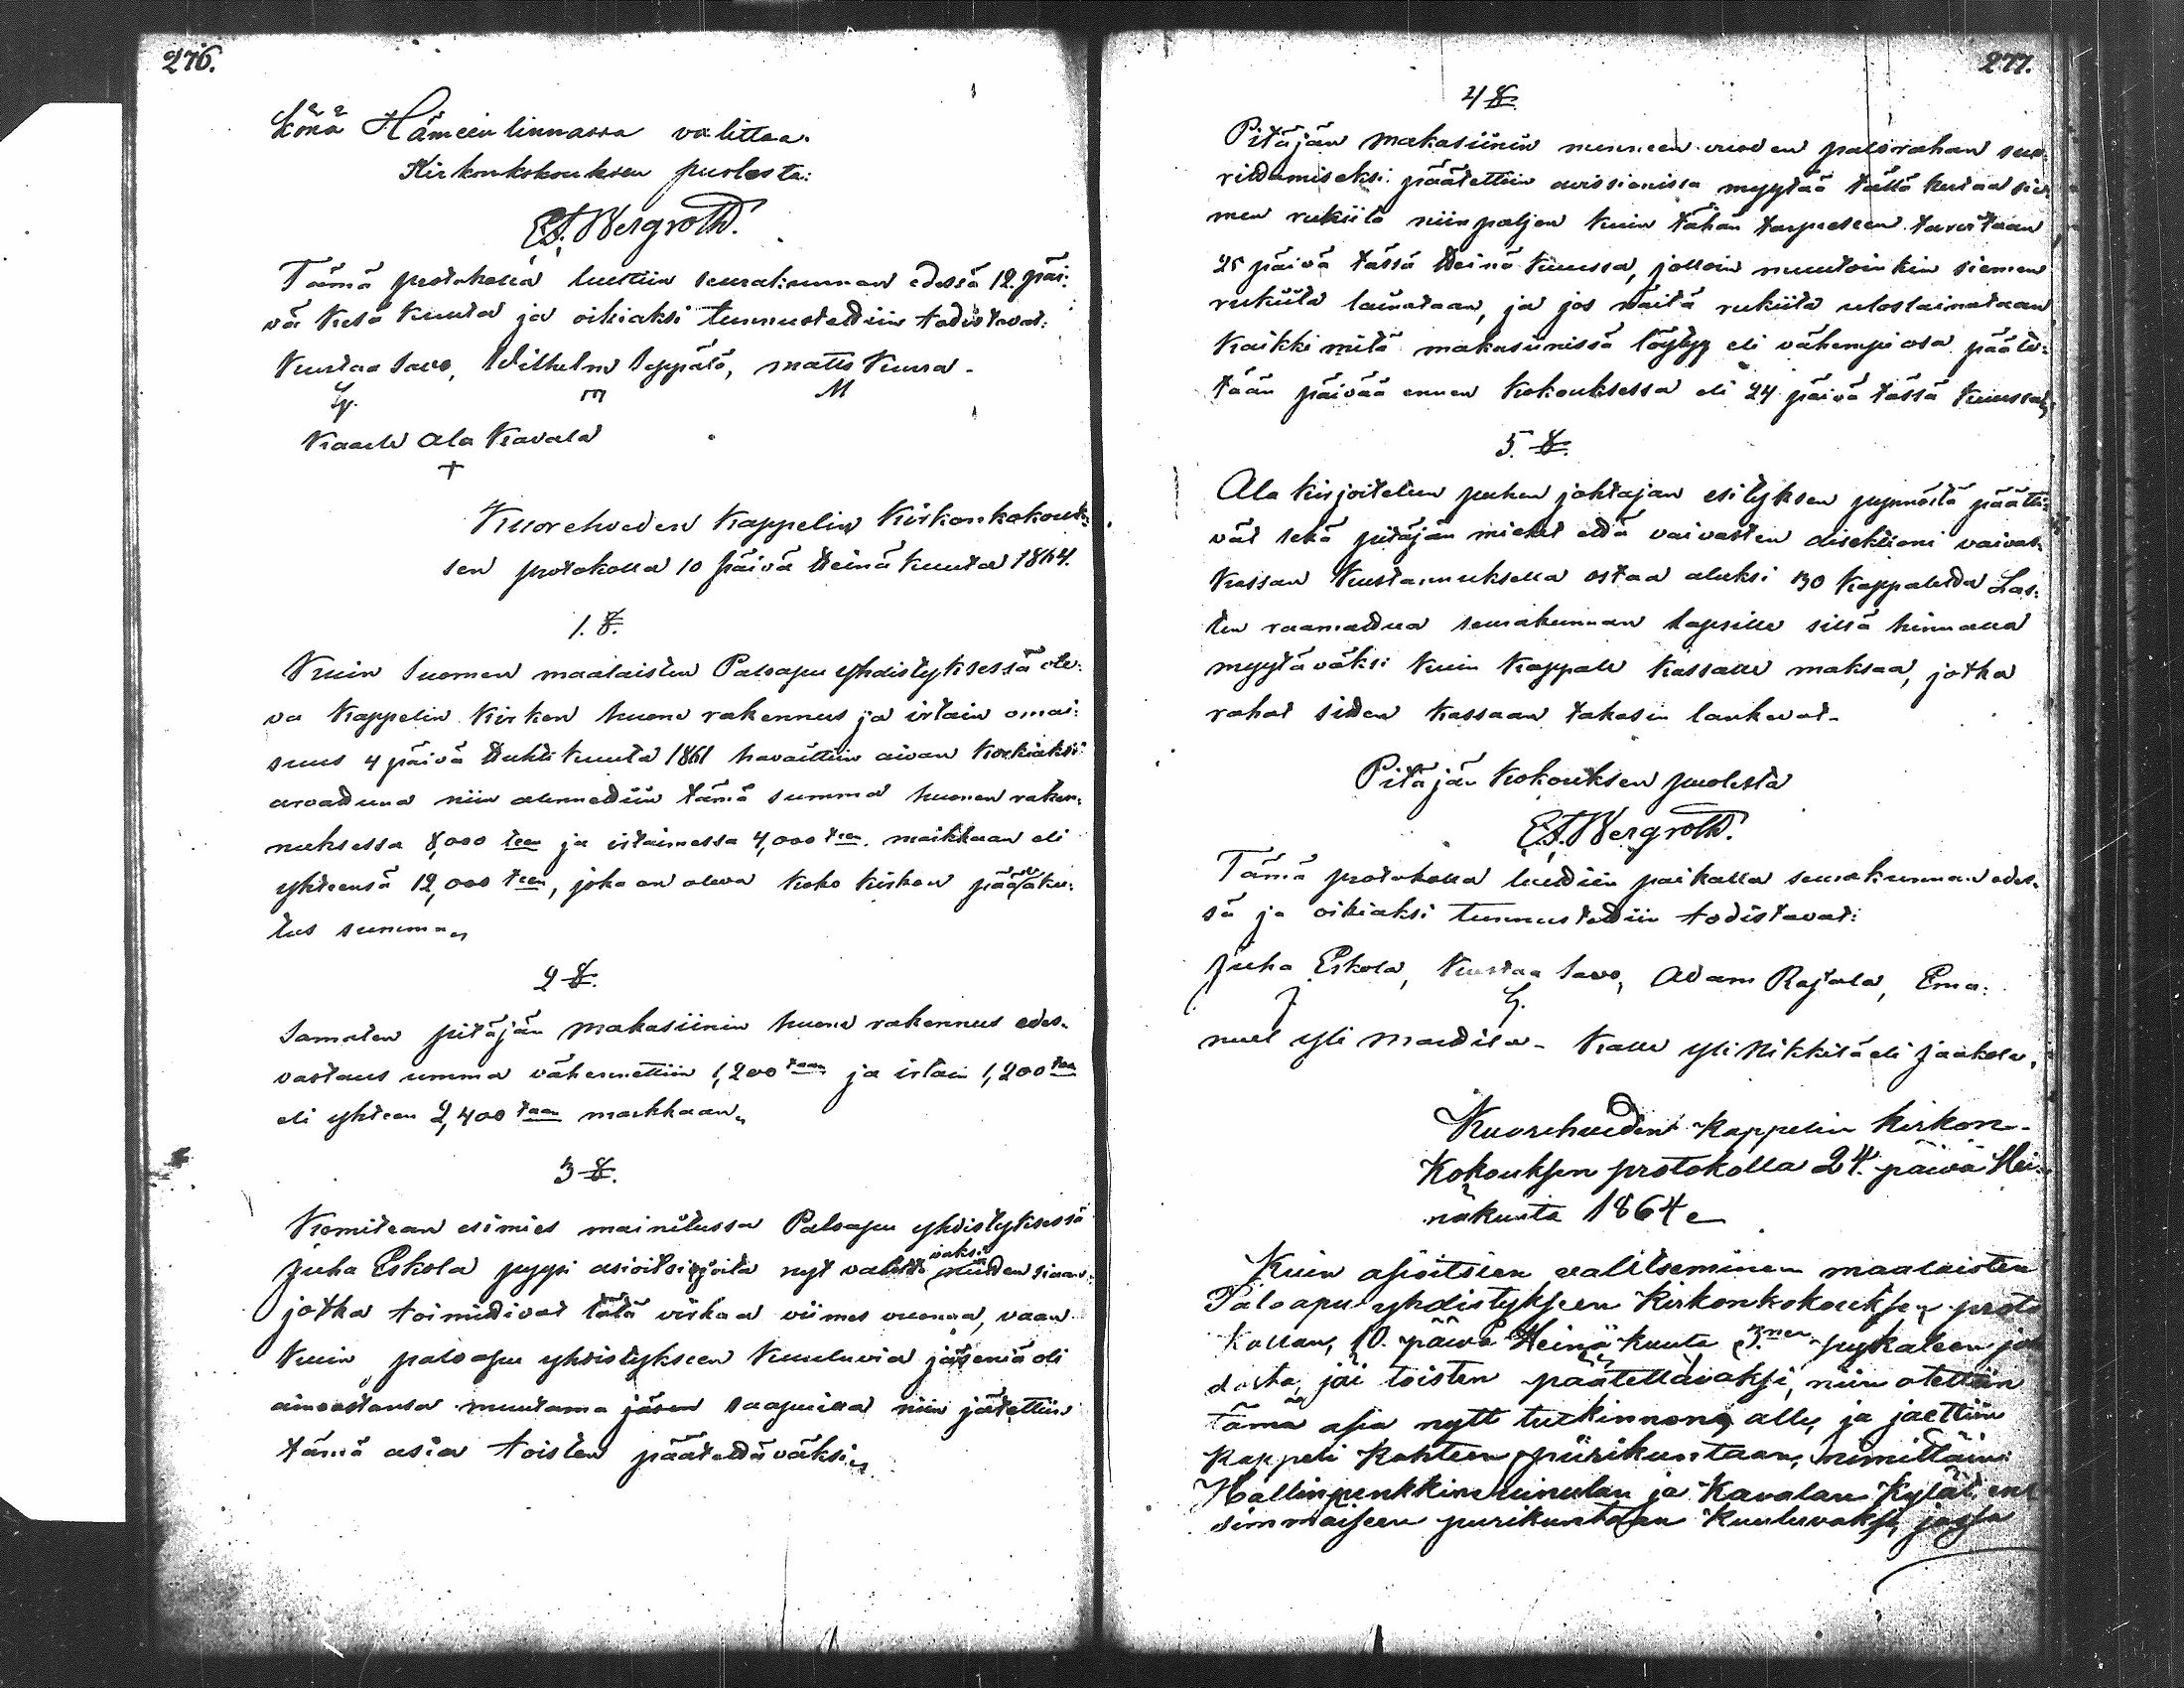 276.
könä Hämeenlinnassa valittaa.
Kirkonkokouksen puolesta:
E.F. Bergroth.
Tämä protokolla luettiin seurakunnan edessä 12. päi:
vä Kesä Kuuta ja oikiaksi tunnustettiin todistavat:
Kustaa Savo, Wilhelm Seppälä, Matts Kuura.
M
Kaarle Ala Kavala
+
Kuoreheveden Kappelin Kirkonkokouk:
sen protokolla 10 päivä Heinä Kuuta 1864.
1. §.
Kuin Suomen maalaisten Paloapu yhdistyksessä ole:
va Kappelin Kirkon huone rakennus ja irtain omai:
suus 4 päivä Huhti Kuuta 1861 havaittiin aivan Korkiaksi
arvattuna niin alennettiin tämä summa huonen raken:
nuksessa 8,000 teen ja irtaimessa 4,000 teen markkaan eli
yhteensä 12,000 teen, joka on oleva koko Kirkon pääva ku:
tus summa„
2 §.
Samaten pitäjän Makasiinin huone rakennus edes.
vastaus umma vähennettiin 1,200 taan ja irtain 1,200 taan
eli yhteen 2,400 taan markkaan„
3 §.
Komitean esimies mainitussa Paloapu yhdistyksessä
Juha Eskola pyysi asioitsijoita nyt valittavaksi niiden siaan
jotka toimittivat tätä virkaa viimes vuonna, vaan
Kuin paloapu yhdistykseen Kuuluvia jäseniä oli
ainoastansa muutama jäsen saapuilla niin jätettiin
tämä asia toisten päätettäväksi„
277.
4 §
Pitäjän Makasiinin menneen vuoden palorahan suo:
rittamiseksi päätettiin auksionissa myytää tällä kertaa sie:
men rukiita niin paljon kuin tähän tarpeeseen tarvitaan
25 päivä tässä Heinä Kuussa, jolloin muutoinkin siemen
rukiita lainataan, ja jos näitä rukiita uloslainataan
Kaikki mitä makasiinissä löytyy eli vähempi osa päätet:
tään päivää ennen Kokouksessa eli 24 päivä tässä Kuussa„
5. §.
Ala Kirjoitetun puhen johtajan esityksen pyynnöstä päätti:
vät sekä pitäjän miehet että vaivasten direktioni vaivas:
Kassan Kustannuksella ostaa aluksi 30 Kappaletta Las:
ten raamattua seurakunnan lapsille sillä hinnalla
myytäväksi Kuin Kappale Kassalle maksaa, jotka
rahat sitten Kassaan takasin lankevat.
Pitäjän Kokouksen puolesta
E.F. Bergroth.
Tämä protokolla luettiin paikalla seurakunnan edes.
sä ja oikiaksi tunnustettiin todistavat:
Juha Eskola, Kustaa Savo, Adam Rajala, Ema:
nuel Yli Mattila. Kalle Yli Nikkilä eli Jaakola,
Kuoreheveden Kappelin Kirkon-
Kokouksen protokolla 24. päivä Hei-
näkuuta 1864
Kuin asioitsien valitseminen maalaisten
Paloapu yhdistykseen Kirkonkokouksen proto
kollan, 10. päivä Heinäkuuta 3:nen pykäleen jo
dosta, jäi toisten päätettäväksi, niin otettiin
tämä asia nytt tutkinnon alle, ja jaettiin
Kappeli Kahteen piirikuntaan, nimittäin:
Hallinpenkkin ja Kavalan Kylät en
simmäiseen piirikuntaan Kuuluvaksi, jossa